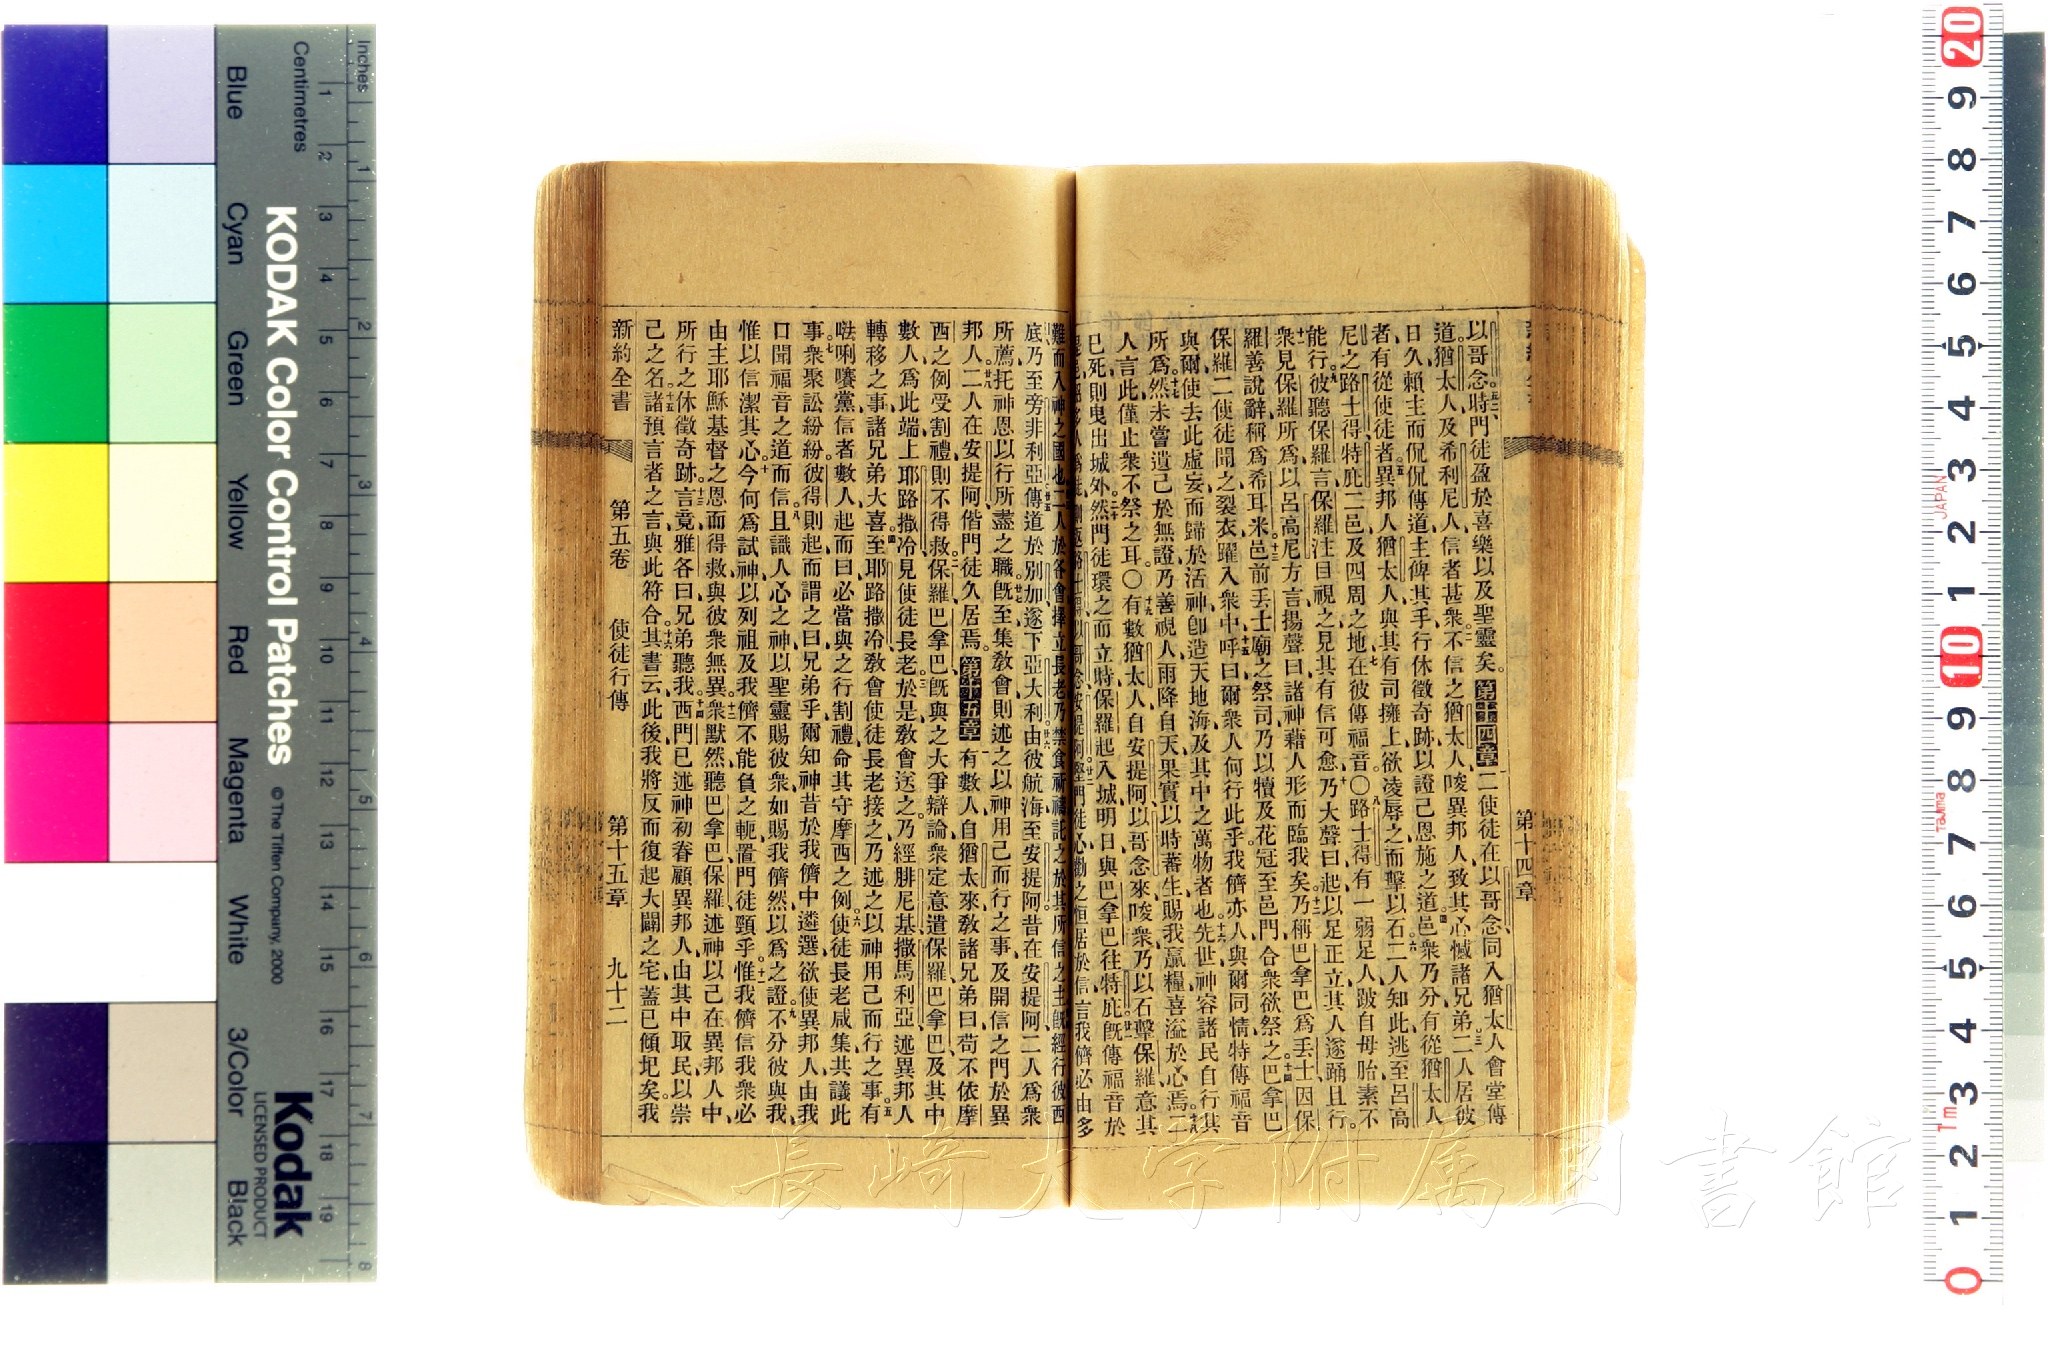 Inches
Centimetres
Blue
Cyan
Green
Yellow
Red
Magenta
White
3/Color
Black
KODAK Color Control Patches
© The Tiffen Company, 2000
Kodak
LICENSED PRODUCT
第十四章
以哥念時門徒盈於喜樂以及聖靈矣。第十四章二使徒在以哥念同入猶太人會堂傳
道猶太人及希利尼人信者甚衆不信之猶太人唆異邦人致其心憾諸兄弟二人居彼
日久賴主而侃侃傳道主俾其手行休徵奇跡以證己恩施之道邑衆乃分有從猶太人
者有從使徒者異邦人猶太人與其有司擁上欲凌辱之而擊以石二人知此逃至呂高
尼之路士得特庇二邑及四周之地在彼傳福音〇路士得有一弱足人跛自母胎素不
能行彼聽保羅言保羅注目視之見其有信可愈乃大聲曰起以足正立其人遂踊且行。
衆見保羅所爲以呂高尼方言揚聲曰諸神藉人形而臨我矣乃稱巴拿巴爲丟士因保
羅善說辭稱爲希耳米邑前丟士廟之祭司乃以犢及花冠至邑門合衆欲祭之巴拿巴
保羅二使徒聞之裂衣躍入衆中呼曰爾衆人何行此乎我儕亦人與爾同情特傳福音
與爾使去此虛妄而歸於活神卽造天地海及其中之萬物者也先世神容諸民自行其
所爲然未嘗遺己於無證乃善視人雨降自天果實以時蕃生賜我羸糧喜溢於心焉二
人言此僅止衆不祭之耳〇有數猶太人自安提阿以哥念來唆衆乃以石擊保羅意其
已死則曳出城外然門徒環之而立特保羅起入城明日與巴拿巴往特庇旣傳福音於
難而入神之國也二人於各會擇立長老乃禁食祈禱託之於其所信之主旣經行彼西
底乃至旁非利亞傳道於別加遂下亞大利由彼航海至安提阿昔在安提阿二人爲衆
所薦托神恩以行所盡之職旣至集敎會則述之以神用己而行之事及開信之門於異
邦人二人在安提阿偕門徒久居焉。第十五章有數人自猶太來敎諸兄弟曰苟不依摩
西之例受割禮則不得救保羅巴拿巴旣與之大爭辯論衆定意遣保羅巴拿巴及其中
數人爲此端上耶路撒冷見使徒長老於是敎會送之乃經腓尼基撒馬利亞述異邦人
轉移之事諸兄弟大喜至耶路撒冷敎會使徒長老接之乃述之以神用己而行之事有
𠵽唎嚽黨信者數人起而曰必當與之行割禮命其守摩西之例使徒長老咸集共議此
事衆聚訟紛紛彼得則起而謂之曰兄弟乎爾知神昔於我儕中遴選欲使異邦人由我
口聞福音之道而信且識人心之神以聖靈賜彼衆如賜我儕然以爲之證不分彼與我
惟以信潔其心今何爲試神以列祖及我儕不能負之軛置門徒頸乎惟我儕信我衆必
由主耶穌基督之恩而得救與彼衆無異衆默然聽巴拿巴保羅述神以己在異邦人中
所行之休徵奇跡言竟雅各曰兄弟聽我西門已述神初眷顧異邦人由其中取民以崇
己之名諸預言者之言與此符合其書云此後我將反而復起大闢之宅蓋已傾圮矣我
新約全書 第五卷 使徒行傳 第十五章 九十二
長崎大学附属図書館
JAPAN
Tajima